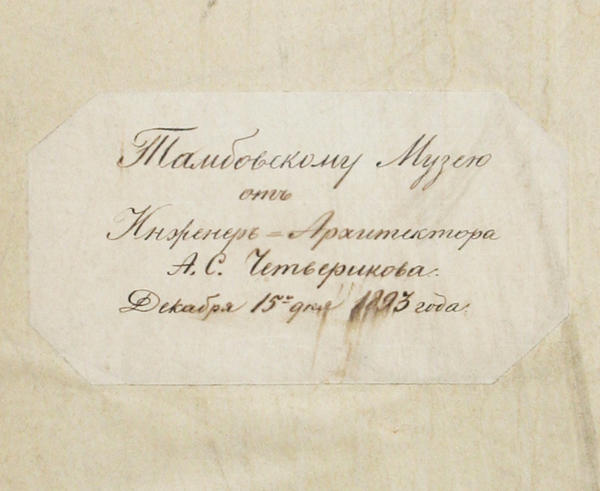 Тамбовскому Музею
отъ
Инженеръ=Архитектора
А. С. Четверикова.
Декабря 15го дня 1893 года.